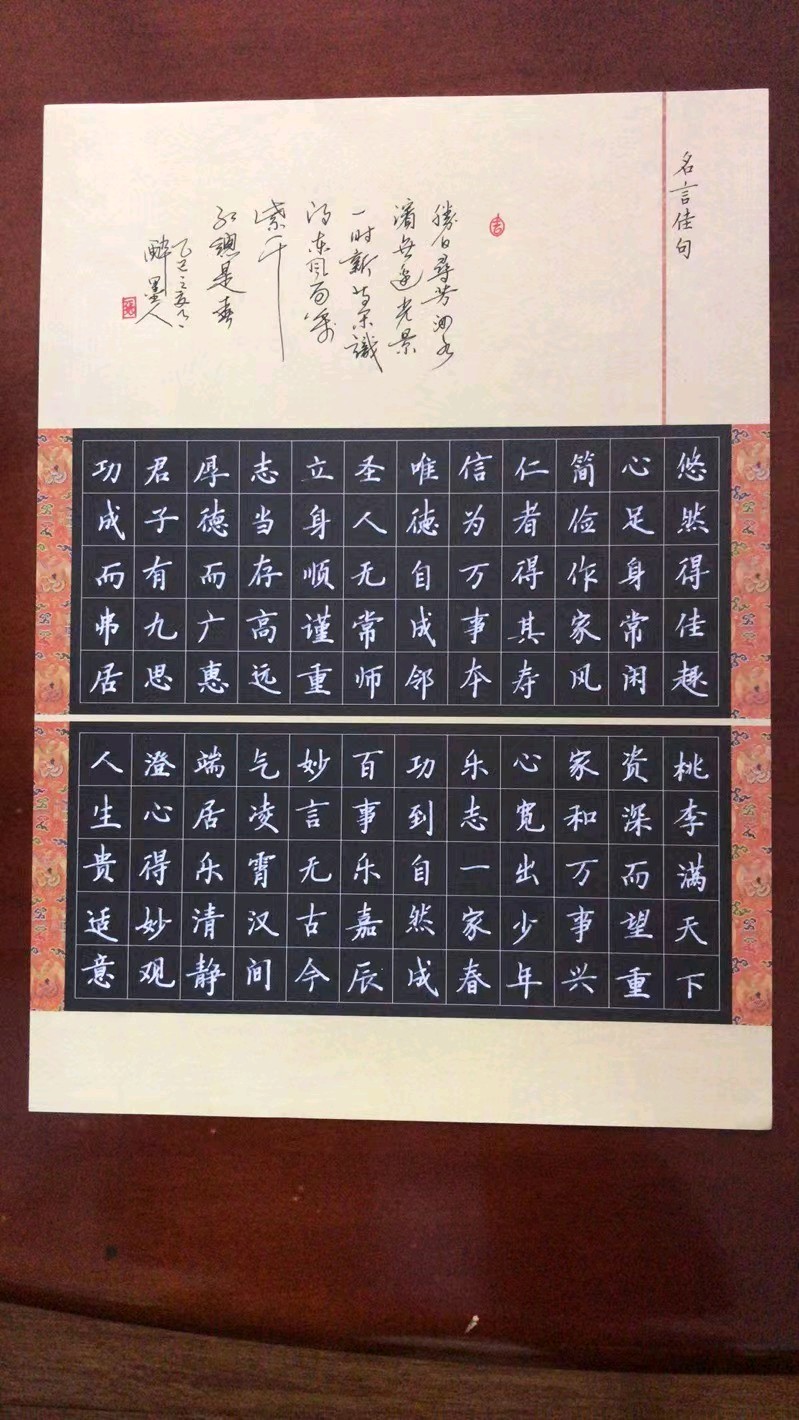 名言佳句
勝日尋芳泗水
濱無邊光景
一时新等閑識
得东风面萬
紫千
红總是春
乙巳之夏月
醉墨人
悠然得佳趣
心足身常闲
简俭作家风
仁者得其寿
信为万事本
唯德自成邻
圣人无常师
立身顺谨重
志当存高远
厚德而广惠
君子有九思
功成而弗居
桃李满天下
资深而望重
家和万事兴
心宽出少年
乐志一家春
功到自然成
百事乐嘉辰
妙言无古今
气凌霄汉间
端居乐清静
澄心得妙观
人生贵适意